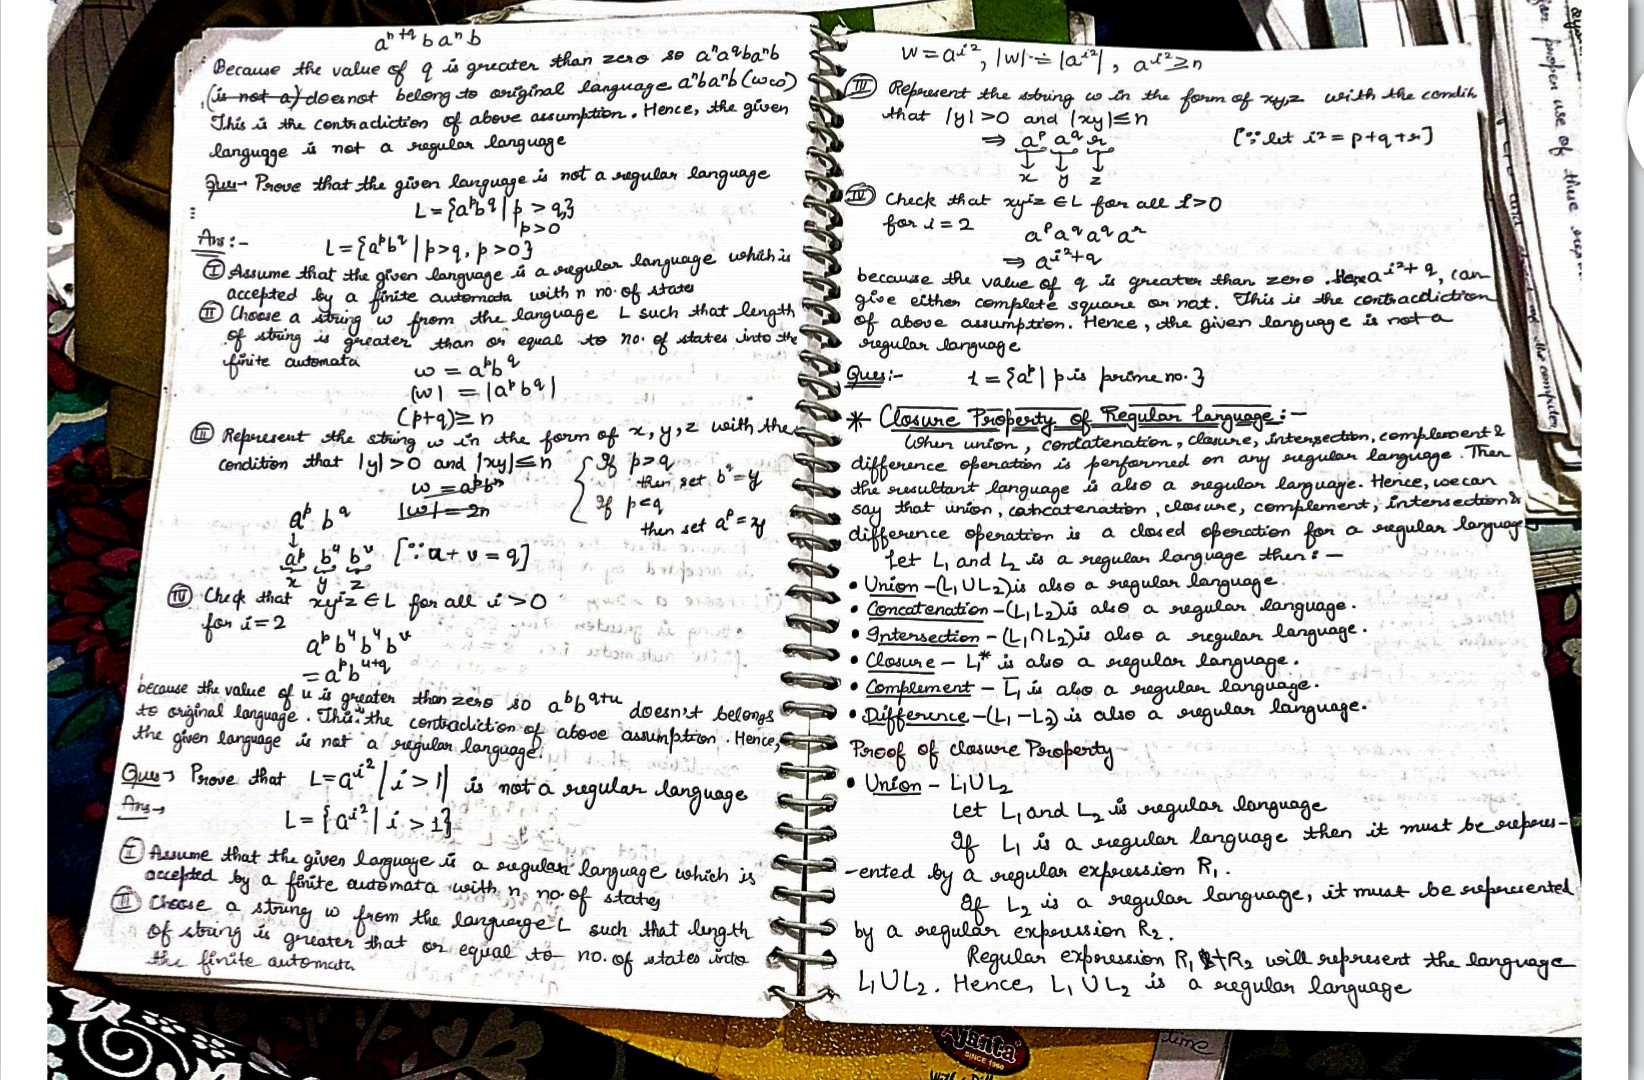 aⁿ⁺q b aⁿ b
Because the value of q is greater than zero so aⁿaqbaⁿb
(is not a) doesnot belong to original language aⁿbaⁿb (wcw)
This is the contradiction of above assumption. Hence, the given
language is not a regular language
Ques→ Prove that the given language is not a regular language
L = {aᵖbq | p > q}
p>0
Ans:-
L = {aᵖbq | p>q, p>0}
I Assume that the given language is a regular language which is
accepted by a finite automata with n no. of states
II Choose a string w from the language L such that length
of string is greater than or equal to no. of states into the
finite automata
w = aᵖbq
|w| = |aᵖbq|
(p+q) ≥ n
III Represent the string w in the form of x, y, z with the
condition that |y|>0 and |xy|≤n
If p>q
then set bq=y
w = aᵖbⁿ
If p<q
|w| = 2n
then set aᵖ=xy
aᵖ bq
↓
aᵖ bᵘ bᵛ [∵ u+v = q]
x y z
IV Check that xyⁱz ∈ L for all i>0
for i=2
aᵖbᵘbᵘbᵛ
= aᵖbᵘ⁺q
because the value of u is greater than zero so aᵇbq⁺ᵘ doesn't belongs
to original language. This is the contradiction of above assumption. Hence,
the given language is not a regular language.
Ques→ Prove that L=aⁱ² | i > 1| is not a regular language
Ans→
L = {aⁱ² | i > 1}
I Assume that the given language is a regular language which is
accepted by a finite automata with n no. of states
II Choose a string w from the language L such that length
of string is greater that or equal to no. of states into
the finite automata
w = aⁱ², |w| = |aⁱ²|, aⁱ² ≥ n
III Represent the string w in the form of xyz with the condit
that |y|>0 and |xy|≤n
⇒ aᵖ aq r [∵ let i² = p+q+r]
↓ ↓ ↓
x y z
IV Check that xyⁱz ∈ L for all i>0
for i=2
aᵖ aq aq aʳ
⇒ aⁱ²⁺q
because the value of q is greater than zero. Here aⁱ²⁺q, can
give either complete square or not. This is the contracdiction
of above assumption. Hence, the given language is not a
regular language
Ques:- L = {aᵖ | p is prime no.}
*- Closure Property of Regular Language:-
When union, contatenation, closure, intersection, complement &
difference operation is performed on any regular language. Then
the resultant language is also a regular language. Hence, we can
say that union, concatenation, closure, complement, intersection &
difference operation is a closed operation for a regular language
Let L₁ and L₂ is a regular language then:-
• Union - (L₁∪L₂) is also a regular language.
• Concatenation - (L₁L₂) is also a regular language.
• Intersection - (L₁∩L₂) is also a regular language.
• Closure - L₁* is also a regular language.
• Complement - L̅₁ is also a regular language.
• Difference - (L₁-L₂) is also a regular language.
Proof of closure Property
• Union - L₁∪L₂
Let L₁ and L₂ is regular language
If L₁ is a regular language then it must be repres-
-ented by a regular expression R₁.
If L₂ is a regular language, it must be represented
by a regular expression R₂.
Regular expression R₁+R₂ will represent the language
L₁∪L₂. Hence, L₁∪L₂ is a regular language
proper use of these
the computer
Ajanta
SINCE 1960
time